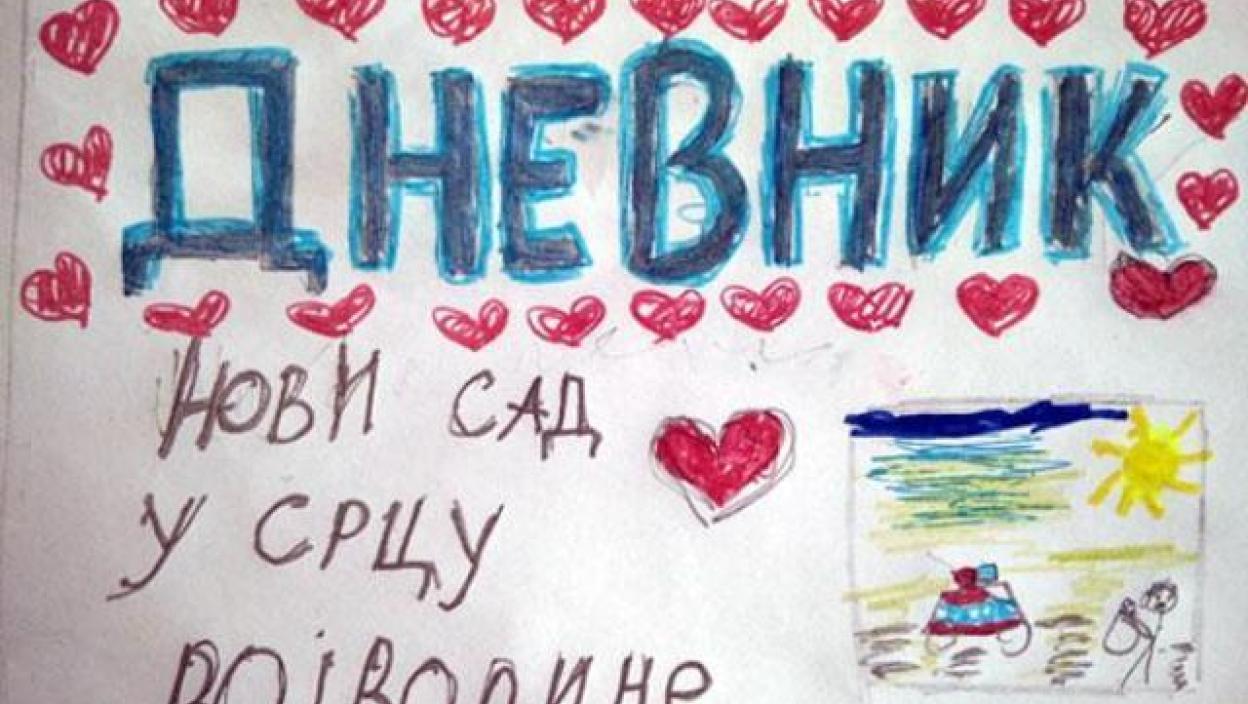 ДНЕВНИК
НОВИ САД
У СРЦУ
ВОЈВОДИНЕ